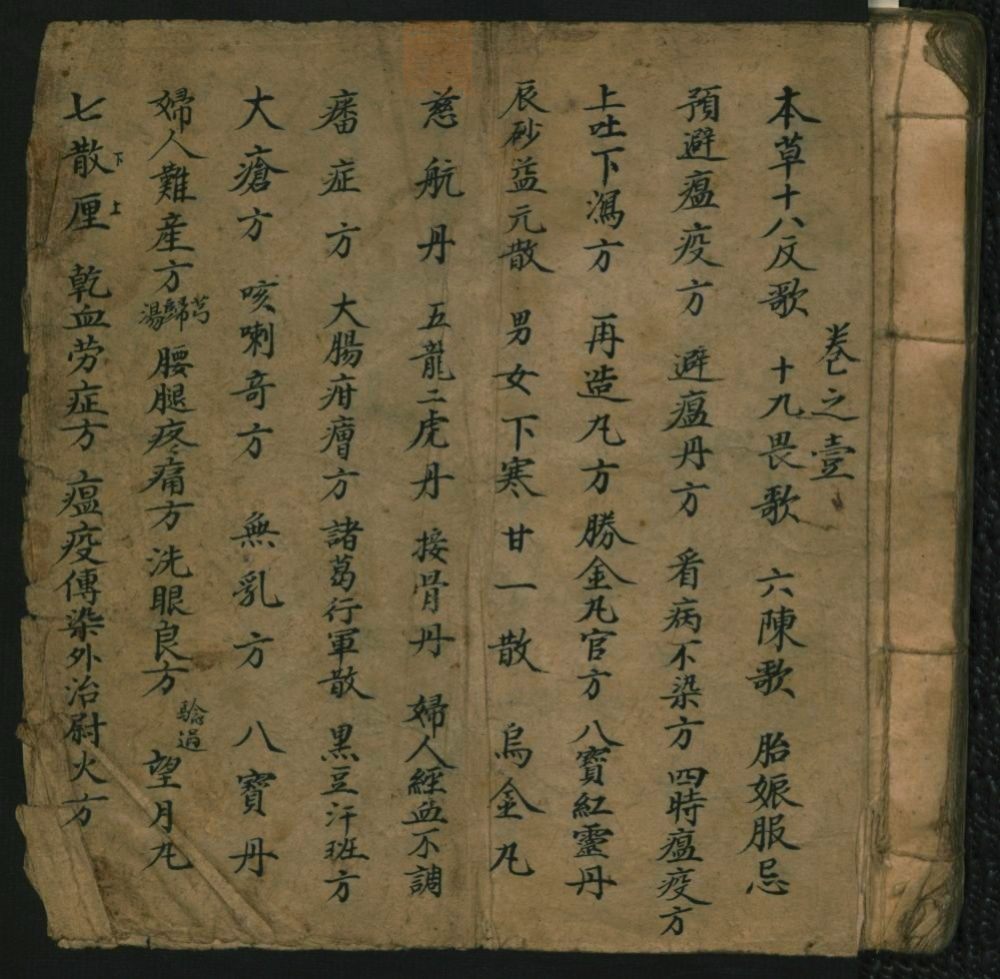 卷之壹
本草十八反歌 十九畏歌 六陳歌 胎娠服忌
預避瘟疫方 避瘟丹方 看病不染方 四時瘟疫方
上吐下瀉方 再造凡方 勝金凡官方 八寶紅靈丹
辰砂益元散 男女下寒 甘一散 烏金凡
慈航丹 五龍二虎丹 接骨丹 婦人經血不調
痧症方 大腸疳㿈方 諸葛行軍散 黑豆汗班方
大瘡方 咳喇奇方 無乳方 八寶丹
婦人難產方 芎歸湯 腰腿疼痛方 洗眼良方 驗過 望月凡
七散下厘上 乾血劳症方 瘟疫傳染外治尉火方